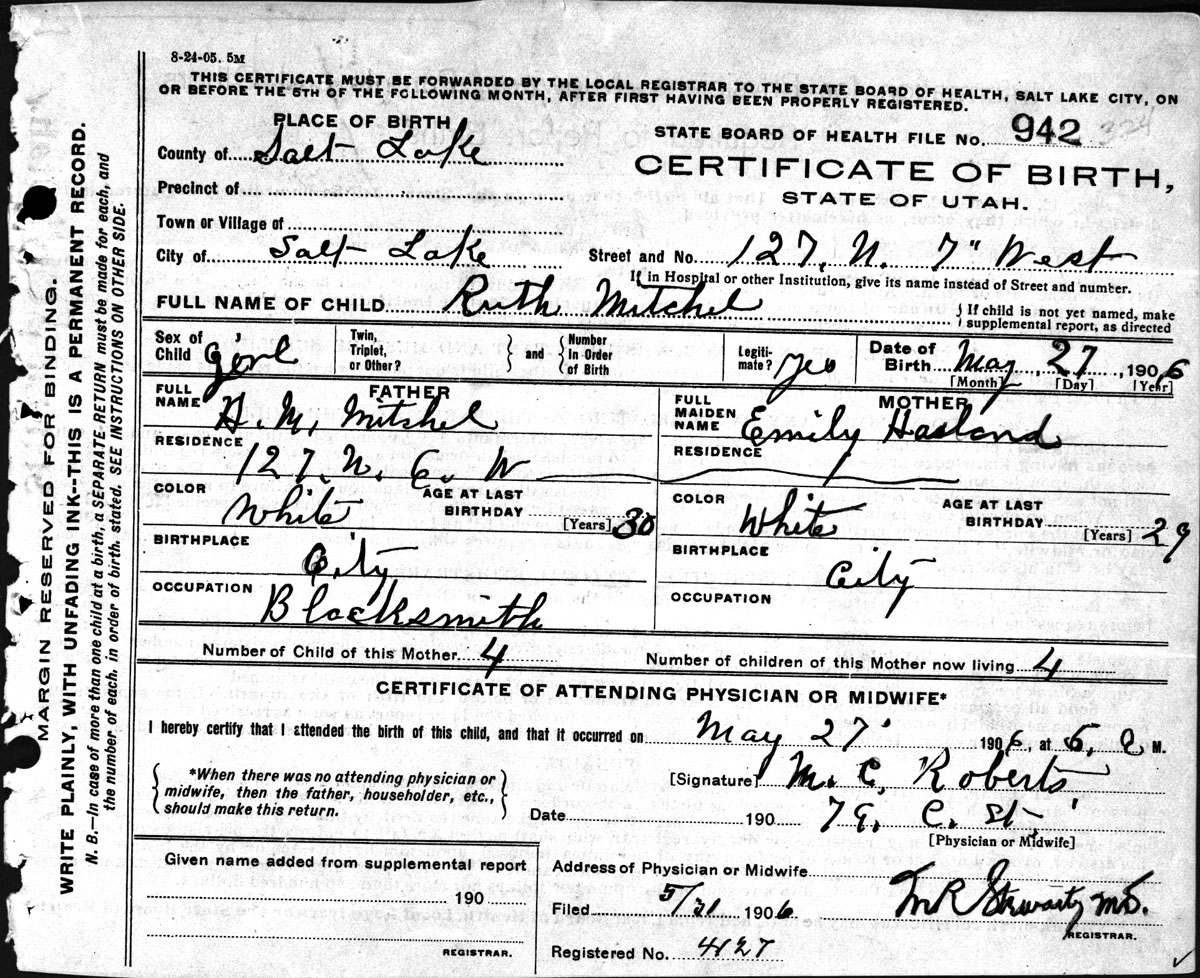 8-24-05. 5M
THIS CERTIFICATE MUST BE FORWARDED BY THE LOCAL REGISTRAR TO THE STATE BOARD OF HEALTH, SALT LAKE CITY, ON
OR BEFORE THE 5TH OF THE FOLLOWING MONTH, AFTER FIRST HAVING BEEN PROPERLY REGISTERED.
PLACE OF BIRTH
STATE BOARD OF HEALTH FILE No. 942 324
County of Salt Lake
CERTIFICATE OF BIRTH,
Precinct of
STATE OF UTAH.
Town or Village of
City of Salt Lake
Street and No. 127, N. 7" West
If in Hospital or other Institution, give its name instead of Street and number.
FULL NAME OF CHILD Ruth Mitchel
If child is not yet named, make
supplemental report, as directed
Sex of
Child girl
Twin,
Triplet,
or Other?
and
Number
In Order
of Birth
Legiti-
mate? yes
Date of
Birth May 27, 1906
[Month] [Day] [Year]
FATHER
FULL
NAME H. M. Mitchel
RESIDENCE
127. N. 6. W
COLOR White
AGE AT LAST
BIRTHDAY 30
[Years]
BIRTHPLACE City
OCCUPATION Blacksmith
MOTHER
FULL
MAIDEN
NAME Emily Hasland
RESIDENCE
COLOR White
AGE AT LAST
BIRTHDAY 29
[Years]
BIRTHPLACE City
OCCUPATION
Number of Child of this Mother 4
Number of children of this Mother now living 4
CERTIFICATE OF ATTENDING PHYSICIAN OR MIDWIFE*
I hereby certify that I attended the birth of this child, and that it occurred on May 27 1906, at 6, a M.
*When there was no attending physician or
midwife, then the father, householder, etc.,
should make this return.
[Signature] M. C. Roberts
Date 190
C. St.
[Physician or Midwife]
Given name added from supplemental report
190
REGISTRAR.
Address of Physician or Midwife
Filed 5/31 1906
M.D.
REGISTRAR.
Registered No. 4127
MARGIN RESERVED FOR BINDING.
WRITE PLAINLY, WITH UNFADING INK--THIS IS A PERMANENT RECORD.
N. B.—In case of more than one child at a birth, a SEPARATE RETURN must be made for each, and
the number of each, in order of birth, stated. SEE INSTRUCTIONS ON OTHER SIDE.